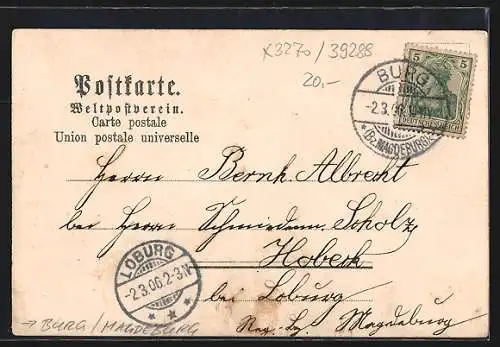 X3270/39288
20.-
Postkarte.
Weltpostverein.
Carte postale
Union postale universelle
5 5
DEUTSCHES REICH
BURG
-2.3.06.
*(Bz. MAGDEBURG)
Herrn Bernh. Albrecht
bei Herrn Schmiedemstr. Scholz,
Hobeck
bei Loburg
Reg. Bz. Magdeburg
LOBURG
-2.3.06.2-3.N.
→ BURG/MAGDEBURG